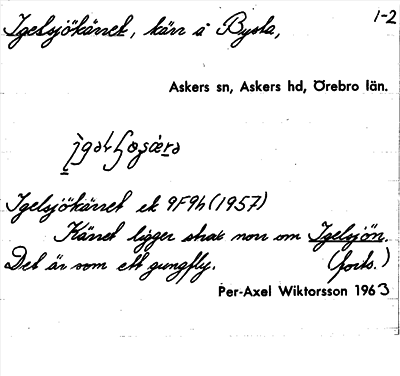 Igelsjökärret, kärr å Bysta,
1-2
Askers sn, Askers hd, Örebro län.
Igelsjökärret ek 9F9h (1957)
Kärret ligger strax norr om Igelsjön.
Det är som ett gungfly. (forts.)
Per-Axel Wiktorsson 1963